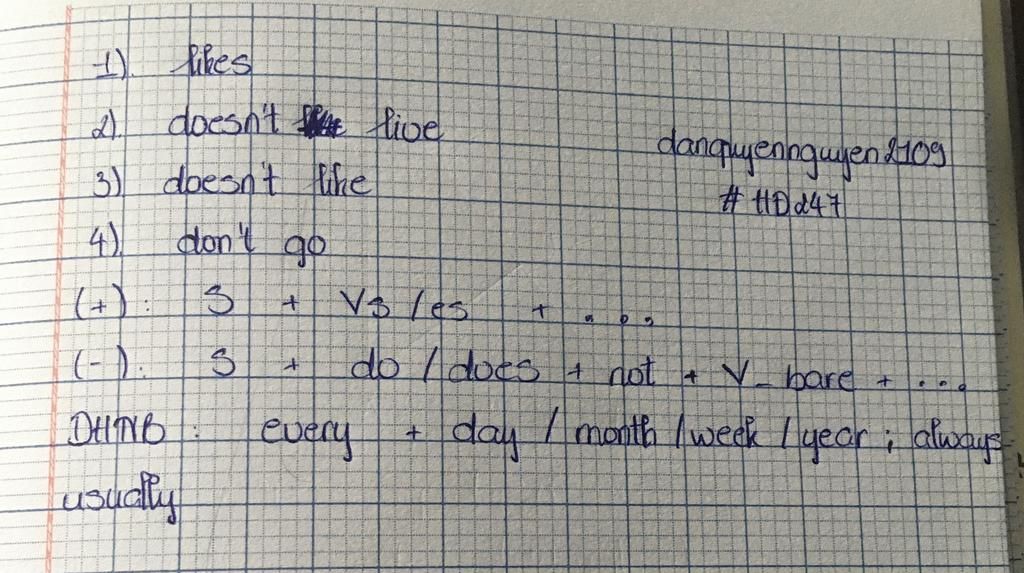 1) likes
2) doesn't live
3) doesn't like
4) don't go
danquyennguyen2109
# HD247
(+) : S + Vs /es + ...
(-) : S + do / does + not + V_bare + ...
DHNB : every + day / month / week / year ; always
usually